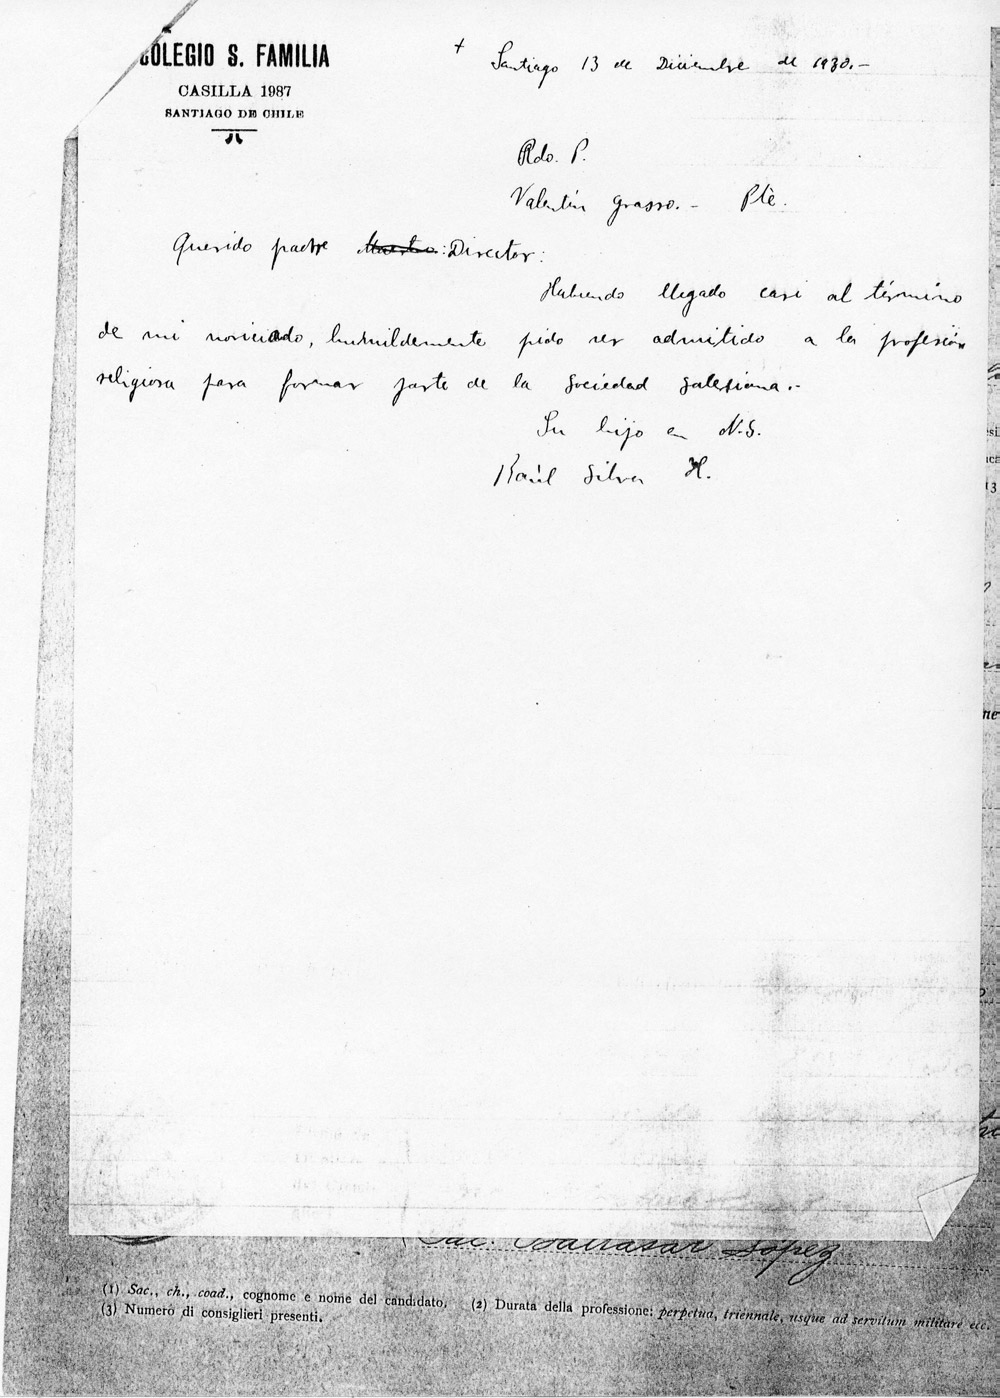 COLEGIO S. FAMILIA
CASILLA 1987
SANTIAGO DE CHILE
+ Santiago 13 de Diciembre de 1930.-
Rdo. P.
Valentín Grasso.- Pte.
Querido padre Maestro: Director:
Habiendo llegado casi al término
de mi noviciado, humildemente pido ser admitido a la profesión
religiosa para formar parte de la Sociedad Salesiana.-
Su hijo en N.S.
Raúl Silva H.
Sac. Baltasar López
(1) Sac., ch., coad., cognome e nome del candidato.
(2) Durata della professione: perpetua, triennale, usque ad servitum militare etc.
(3) Numero di consiglieri presenti.